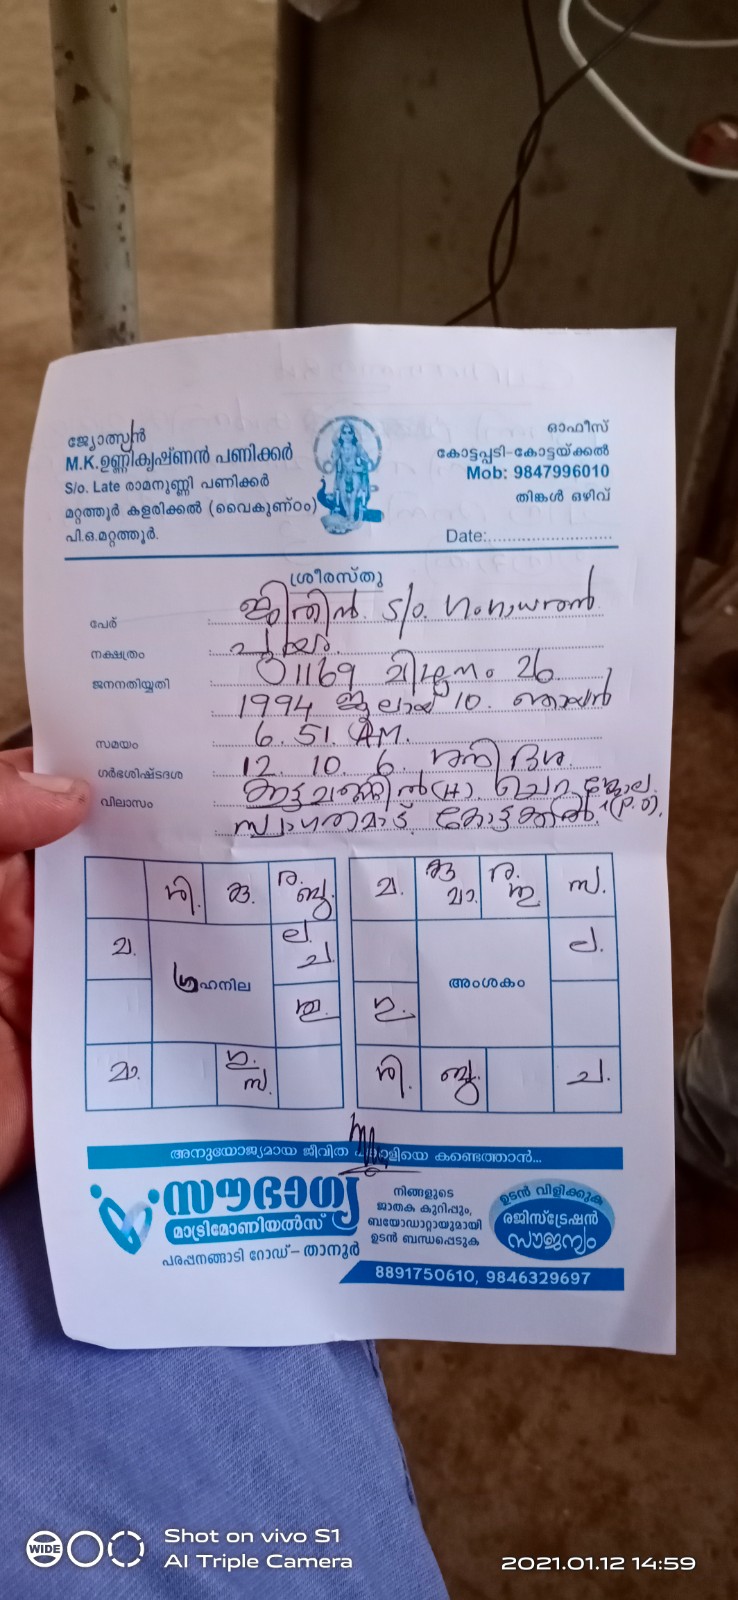 ജ്യോത്സ്യൻ
M.K.ഉണ്ണികൃഷ്ണൻ പണിക്കർ
S/o. Late രാമനുണ്ണി പണിക്കർ
മറ്റത്തൂർ കളരിക്കൽ (വൈകുണ്ഠം)
പി.ഒ.മറ്റത്തൂർ.
ഓഫീസ്
കോട്ടപ്പടി-കോട്ടയ്ക്കൽ
Mob: 9847996010
തിങ്കൾ ഒഴിവ്
Date:
ശ്രീരസ്തു
പേര് ജിതിൻ. S/o. ഗംഗാധരൻ
നക്ഷത്രം പൂയം.
ജനനതിയ്യതി 1169 മിഥുനം 26
1994 ജൂലായ് 10. ഞായർ
സമയം 6. 51. AM.
ഗർഭശിഷ്ടദശ 12. 10. 6. ശനി ദശ
വിലാസം (H)
സ്വാഗതമാട് കോട്ടക്കൽ. (P.O).
ശി. കു. ര. ബു
മ. ല. ച.
ഗ്രഹനില
ശു.
മാ. ഗു. സ.
മ. കു മാ. ര. ശു സ.
ല.
അംശകം
ഗു.
ശി. ബു. ച.
അനുയോജ്യമായ ജീവിത പങ്കാളിയെ കണ്ടെത്താൻ...
സൗഭാഗ്യ
മാട്രിമോണിയൽസ്
പരപ്പനങ്ങാടി റോഡ് – താനൂർ
നിങ്ങളുടെ
ജാതക കുറിപ്പും,
ബയോഡാറ്റയുമായി
ഉടൻ ബന്ധപ്പെടുക
ഉടൻ വിളിക്കുക
രജിസ്ട്രേഷൻ
സൗജന്യം
8891750610, 9846329697
WIDE
Shot on vivo S1
AI Triple Camera
2021.01.12 14:59